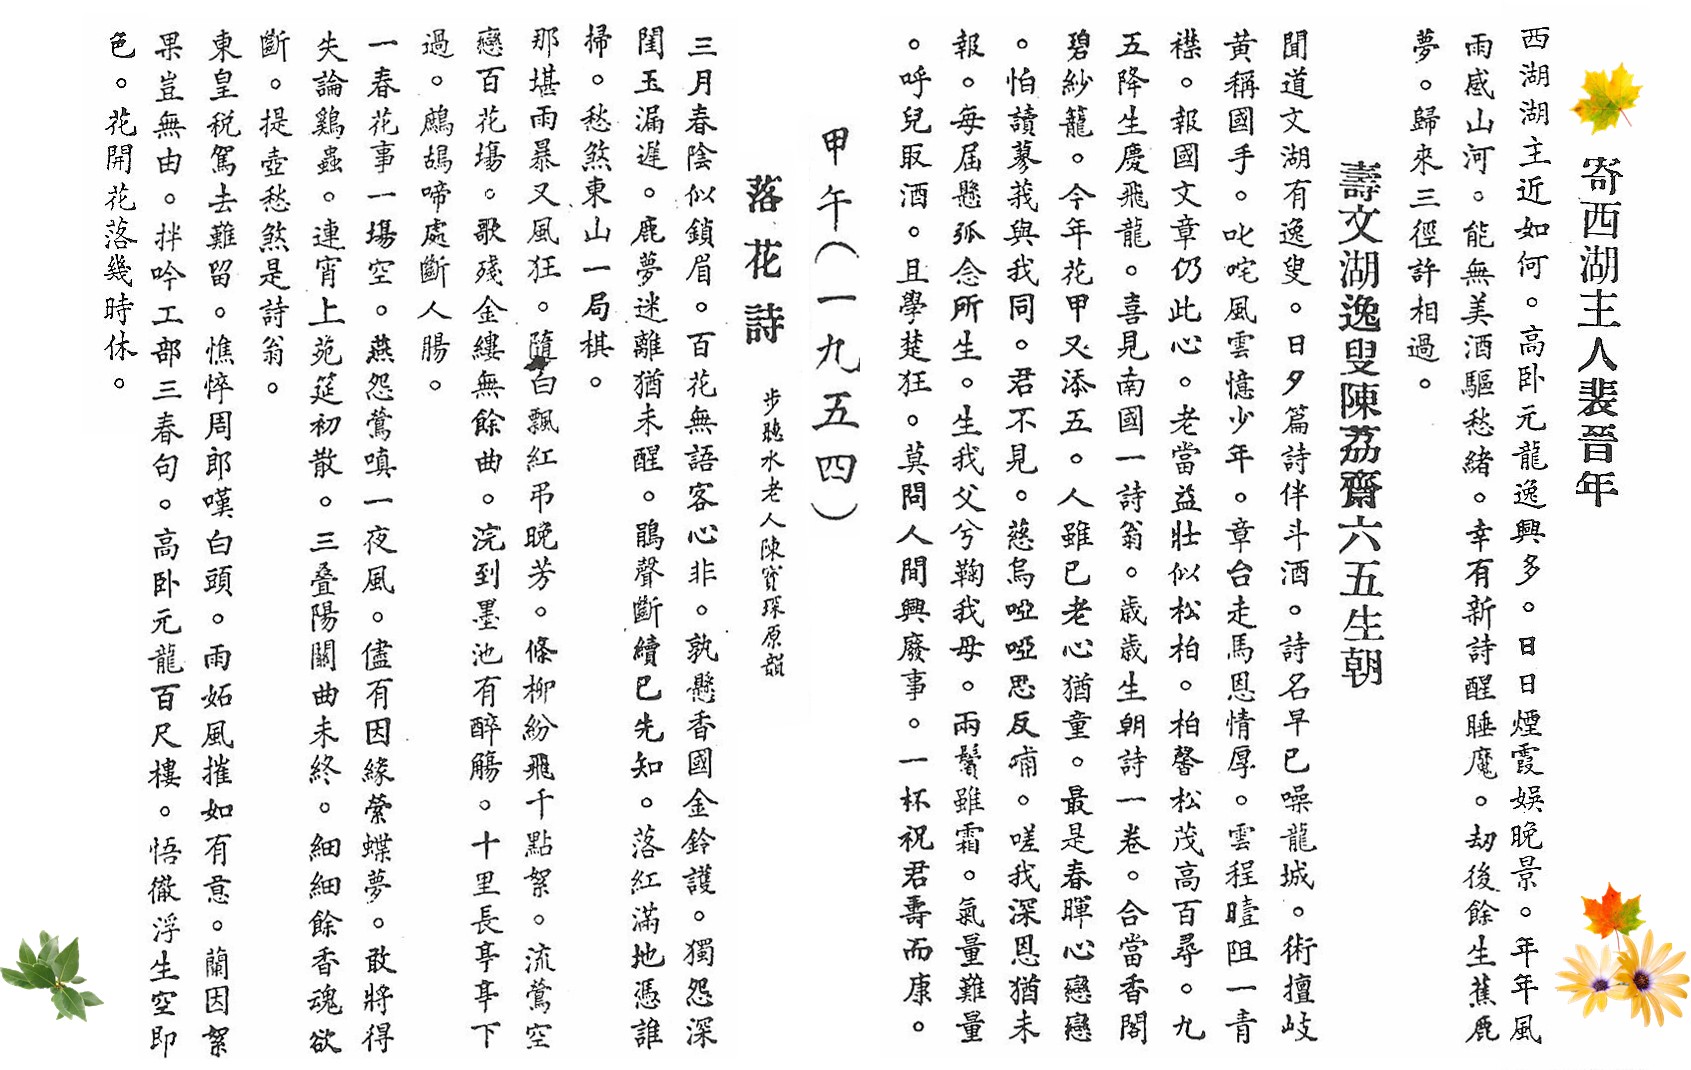 寄西湖主人裴晉年
西湖湖主近如何。高卧元龍逸興多。日日煙霞娛晚景。年年風
雨感山河。能無美酒驅愁緒。幸有新詩醒睡魔。劫後餘生蕉鹿
夢。歸來三徑許相過。
壽文湖逸叟陳荔齋六五生朝
聞道文湖有逸叟。日夕篇詩伴斗酒。詩名早已噪龍城。術擅岐
黃稱國手。叱咤風雲憶少年。章台走馬恩情厚。雲程曀阻一青
襟。報國文章仍此心。老當益壯似松柏。柏馨松茂高百尋。九
五降生慶飛龍。喜見南國一詩翁。歲歲生朝詩一卷。合當香閣
碧紗籠。今年花甲又添五。人雖已老心猶童。最是春暉心戀戀
。怕讀蓼莪與我同。君不見。慈烏啞啞思反哺。嗟我深恩猶未
報。每屆懸弧念所生。生我父兮鞠我母。兩鬢雖霜。氣量難量
。呼兒取酒。且學楚狂。莫問人間興廢事。一杯祝君壽而康。
甲午(一九五四)
落花詩 步聽水老人陳寶琛原韻
三月春陰似鎖眉。百花無語客心非。孰懸香國金鈴護。獨怨深
閨玉漏遲。鹿夢迷離猶未醒。鵑聲斷續已先知。落紅滿地憑誰
掃。愁煞東山一局棋。
那堪雨暴又風狂。隨白飄紅弔晚芳。條柳紛飛千點絮。流鶯空
戀百花塲。歌殘金縷無餘曲。浣到墨池有醉觴。十里長亭亭下
過。鷓鴣啼處斷人腸。
一春花事一塲空。燕怨鶯嗔一夜風。儘有因緣縈蝶夢。敢將得
失論鷄蟲。連宵上苑筵初散。三叠陽關曲未終。細細餘香魂欲
斷。提壺愁煞是詩翁。
東皇税駕去難留。憔悴周郎嘆白頭。雨妬風摧如有意。蘭因絮
果豈無由。拌吟工部三春句。高卧元龍百尺樓。悟徹浮生空即
色。花開花落幾時休。